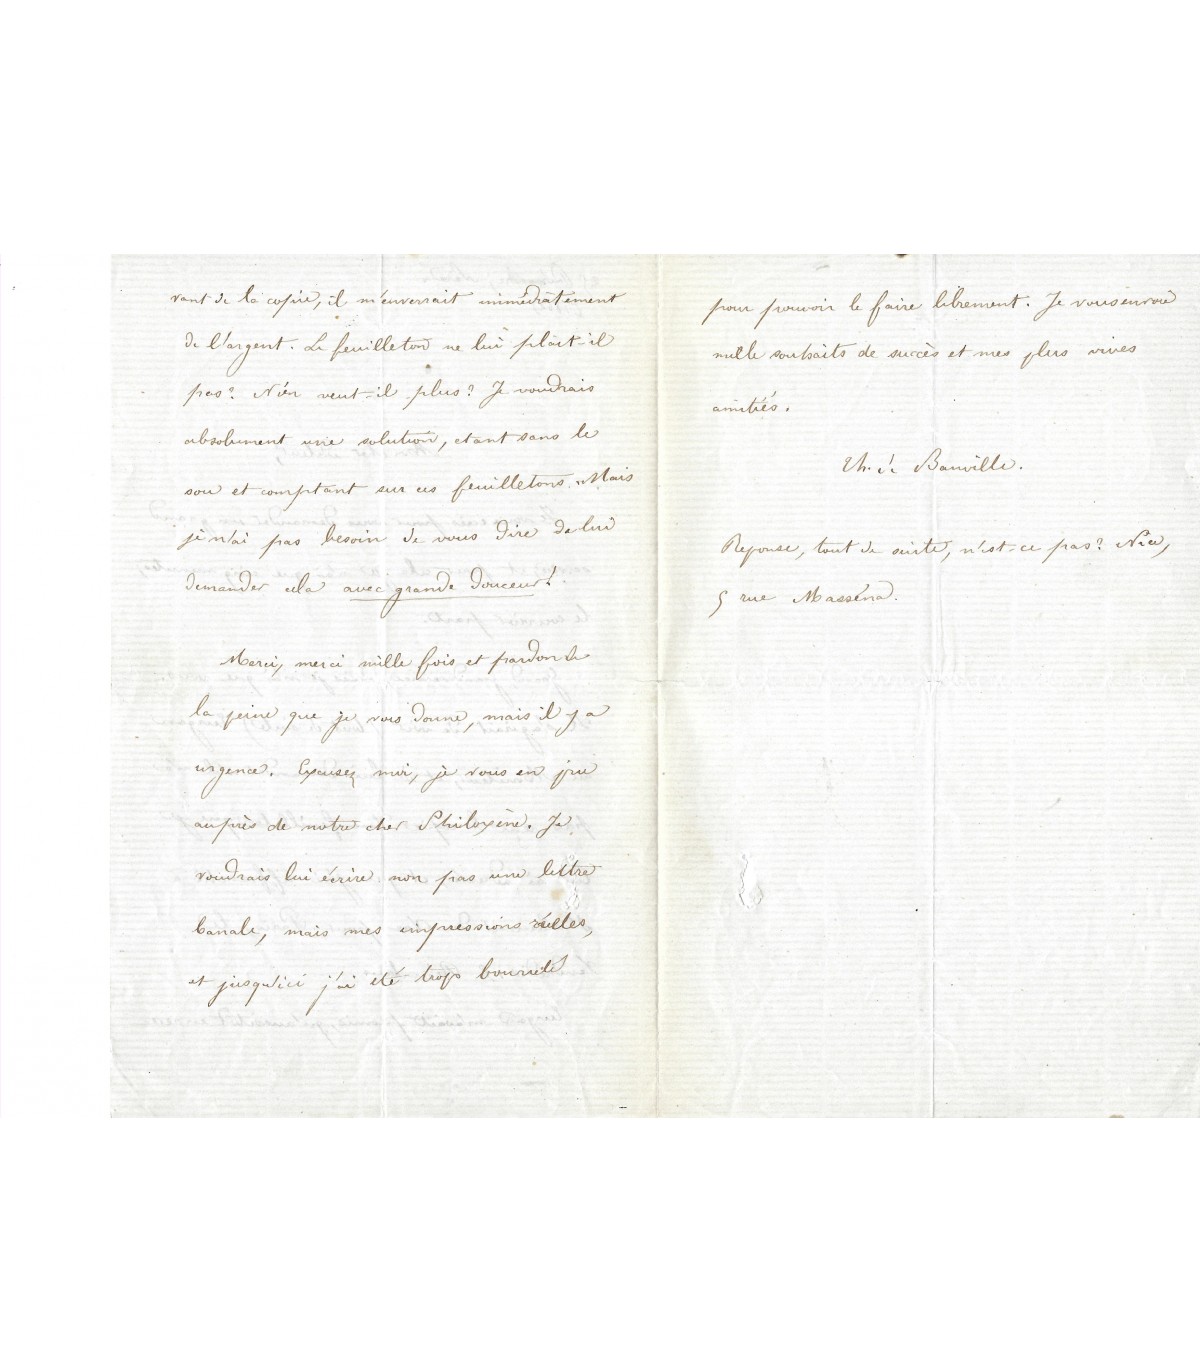 vant de la copie, il m'enverrait immédiatement
de l'argent. Le feuilleton ne lui plaît-il
pas? N'en veut-il plus? Je voudrais
absolument une solution, étant sans le
sou et comptant sur ces feuilletons. Mais
je n'ai pas besoin de vous dire de lui
demander cela avec grande douceur!
Merci, merci mille fois et pardon de
la peine que je vous donne, mais il y a
urgence. Excusez moi, je vous en prie
auprès de notre cher Philoxène. Je
voudrais lui écrire non pas une lettre
banale, mais mes impressions réelles,
et jusqu'ici j'ai été trop bourrelé
pour pouvoir le faire librement. Je vous envoie
mille souhaits de succès et mes plus vives
amitiés.
Th. de Banville.
Réponse, tout de suite, n'est-ce pas? Nice,
5 rue Masséna.